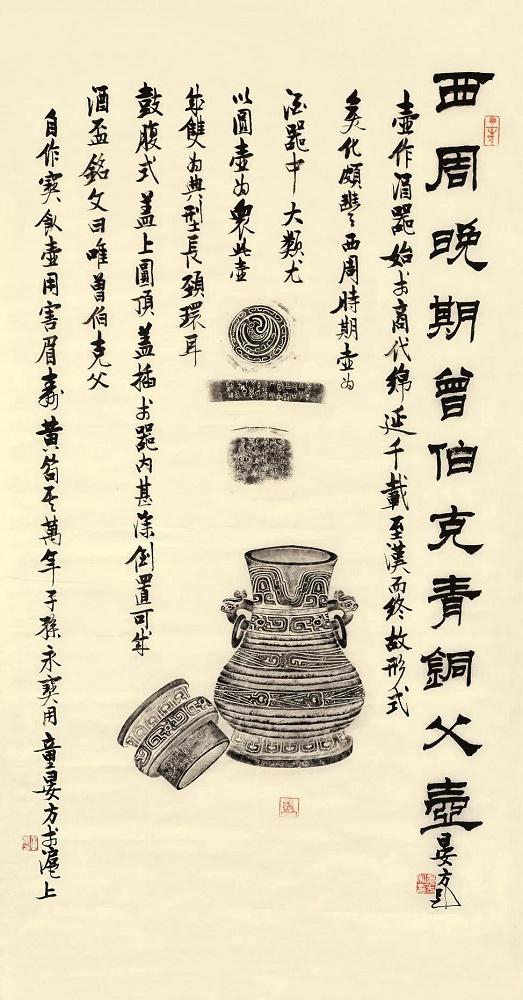 西周晚期曾伯克青銅父壺
晏方題
壺作酒器始於商代綿延千載至漢而終故形式
变化頗豐西周時期壺为
酒器中大類尤
以圓壺为衆此壺
成雙为典型長頸環耳
鼓腹式蓋上圓頂蓋插於器內甚深倒置可成
酒盃銘文曰唯曾伯克父
自作寶飲壺用害眉壽黃耇其萬年子孫永寶用童晏方於滬上